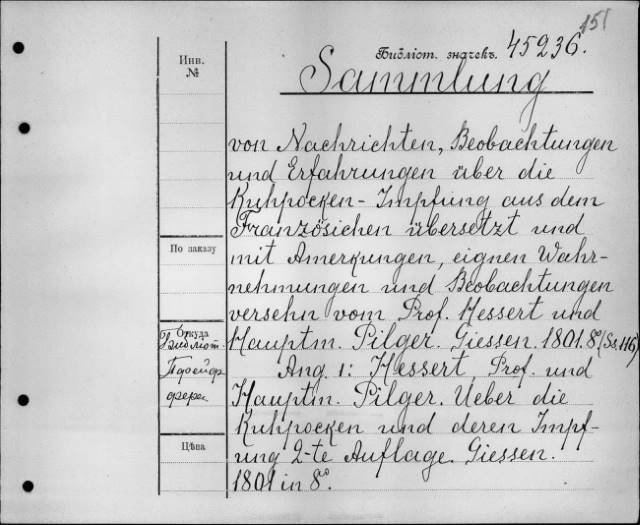 151
Библіот. значекъ. 45236.
Инв.
№
Sammlung
von Nachrichten, Beobachtungen
und Erfahrungen über die
Kuhpocken-Impfung aus dem
Französichen übersetzt und
По заказу
mit Amerkungen, eignen Wahr-
nehmungen und Beobachtungen
versehn vom Prof. Hessert und
Откуда
Библіот.
Hauptm. Pilger. Giessen. 1801. 8° (Sa 116)
Ang. 1: Hessert, Prof. und
Hauptm. Pilger. Ueber die
Kuhpocken und deren Impf-
Цѣна
ung 2-te Auflage. Giessen.
1801 in 8°.